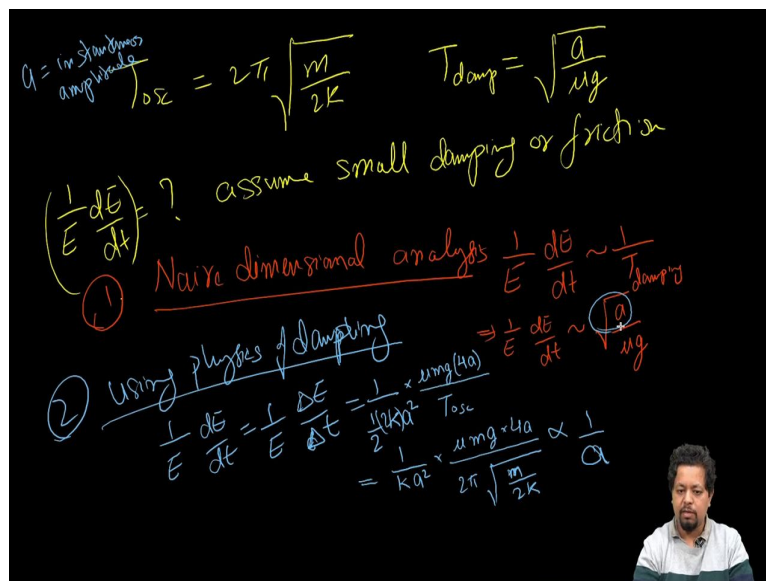 a = instantaneous amplitude
T_osc = 2π √(m/2k)   T_damp = √(a/μg)
(1/E dE/dt) = ? assume small damping or friction
① Naive dimensional analysis 1/E dE/dt ~ 1/T_damping
⇒ 1/E dE/dt ~ √(a/μg)
② using physics of dampting
1/E dE/dt = 1/E ΔE/Δt = 1/(1/2(2k)a²) × μmg(4a)/T_osc
= 1/(ka²) × μmg×4a/(2π√(m/2k)) ∝ 1/a